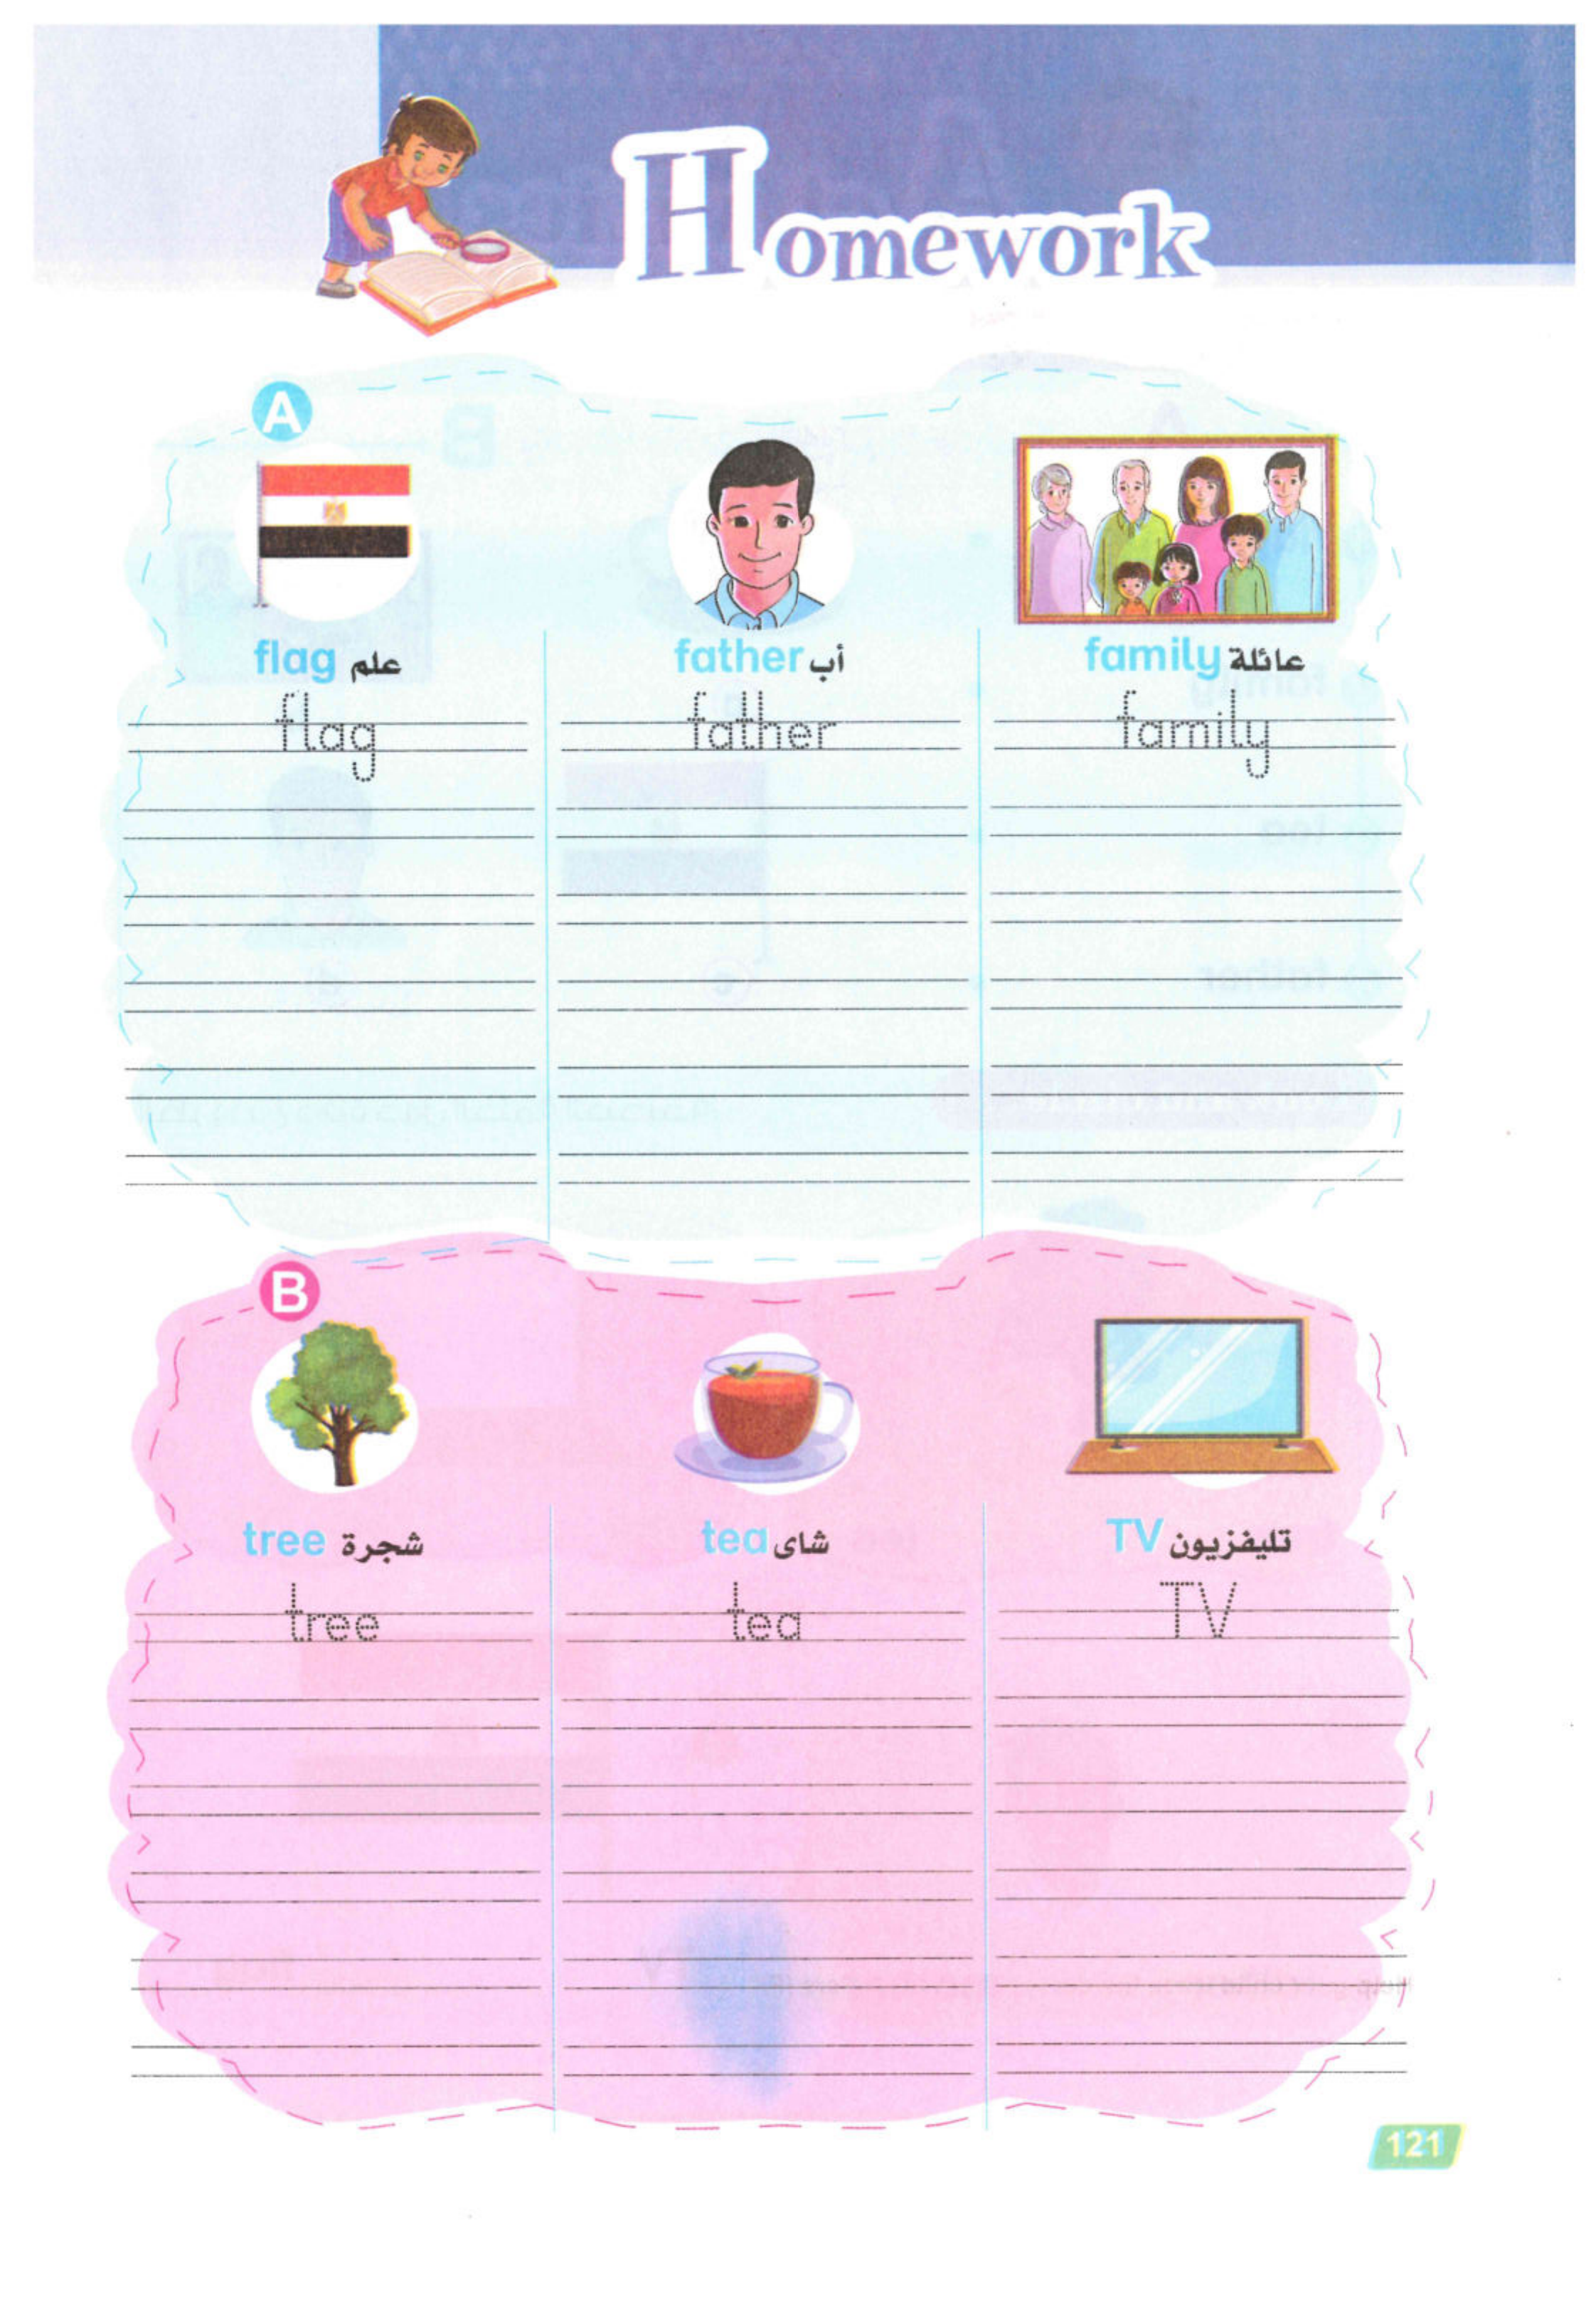 Homework
A
flag علم
father أب
family عائلة
flag
father
family
B
tree شجرة
tea شاى
TV تليفزيون
tree
tea
TV
121